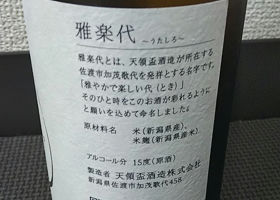 雅楽代
～うたしろ～
雅楽代とは、天領盃酒造が所在する
佐渡市加茂歌代を発祥とする名字です。
「雅やかで楽しい代（とき）」
そのひと時をこのお酒が彩れるように
と願いを込めて命名しました。
原材料名 米（新潟県産）、
米麹（新潟県産米）
アルコール分 15度（原酒）
製造者 天領盃酒造株式会社
新潟県佐渡市加茂歌代458